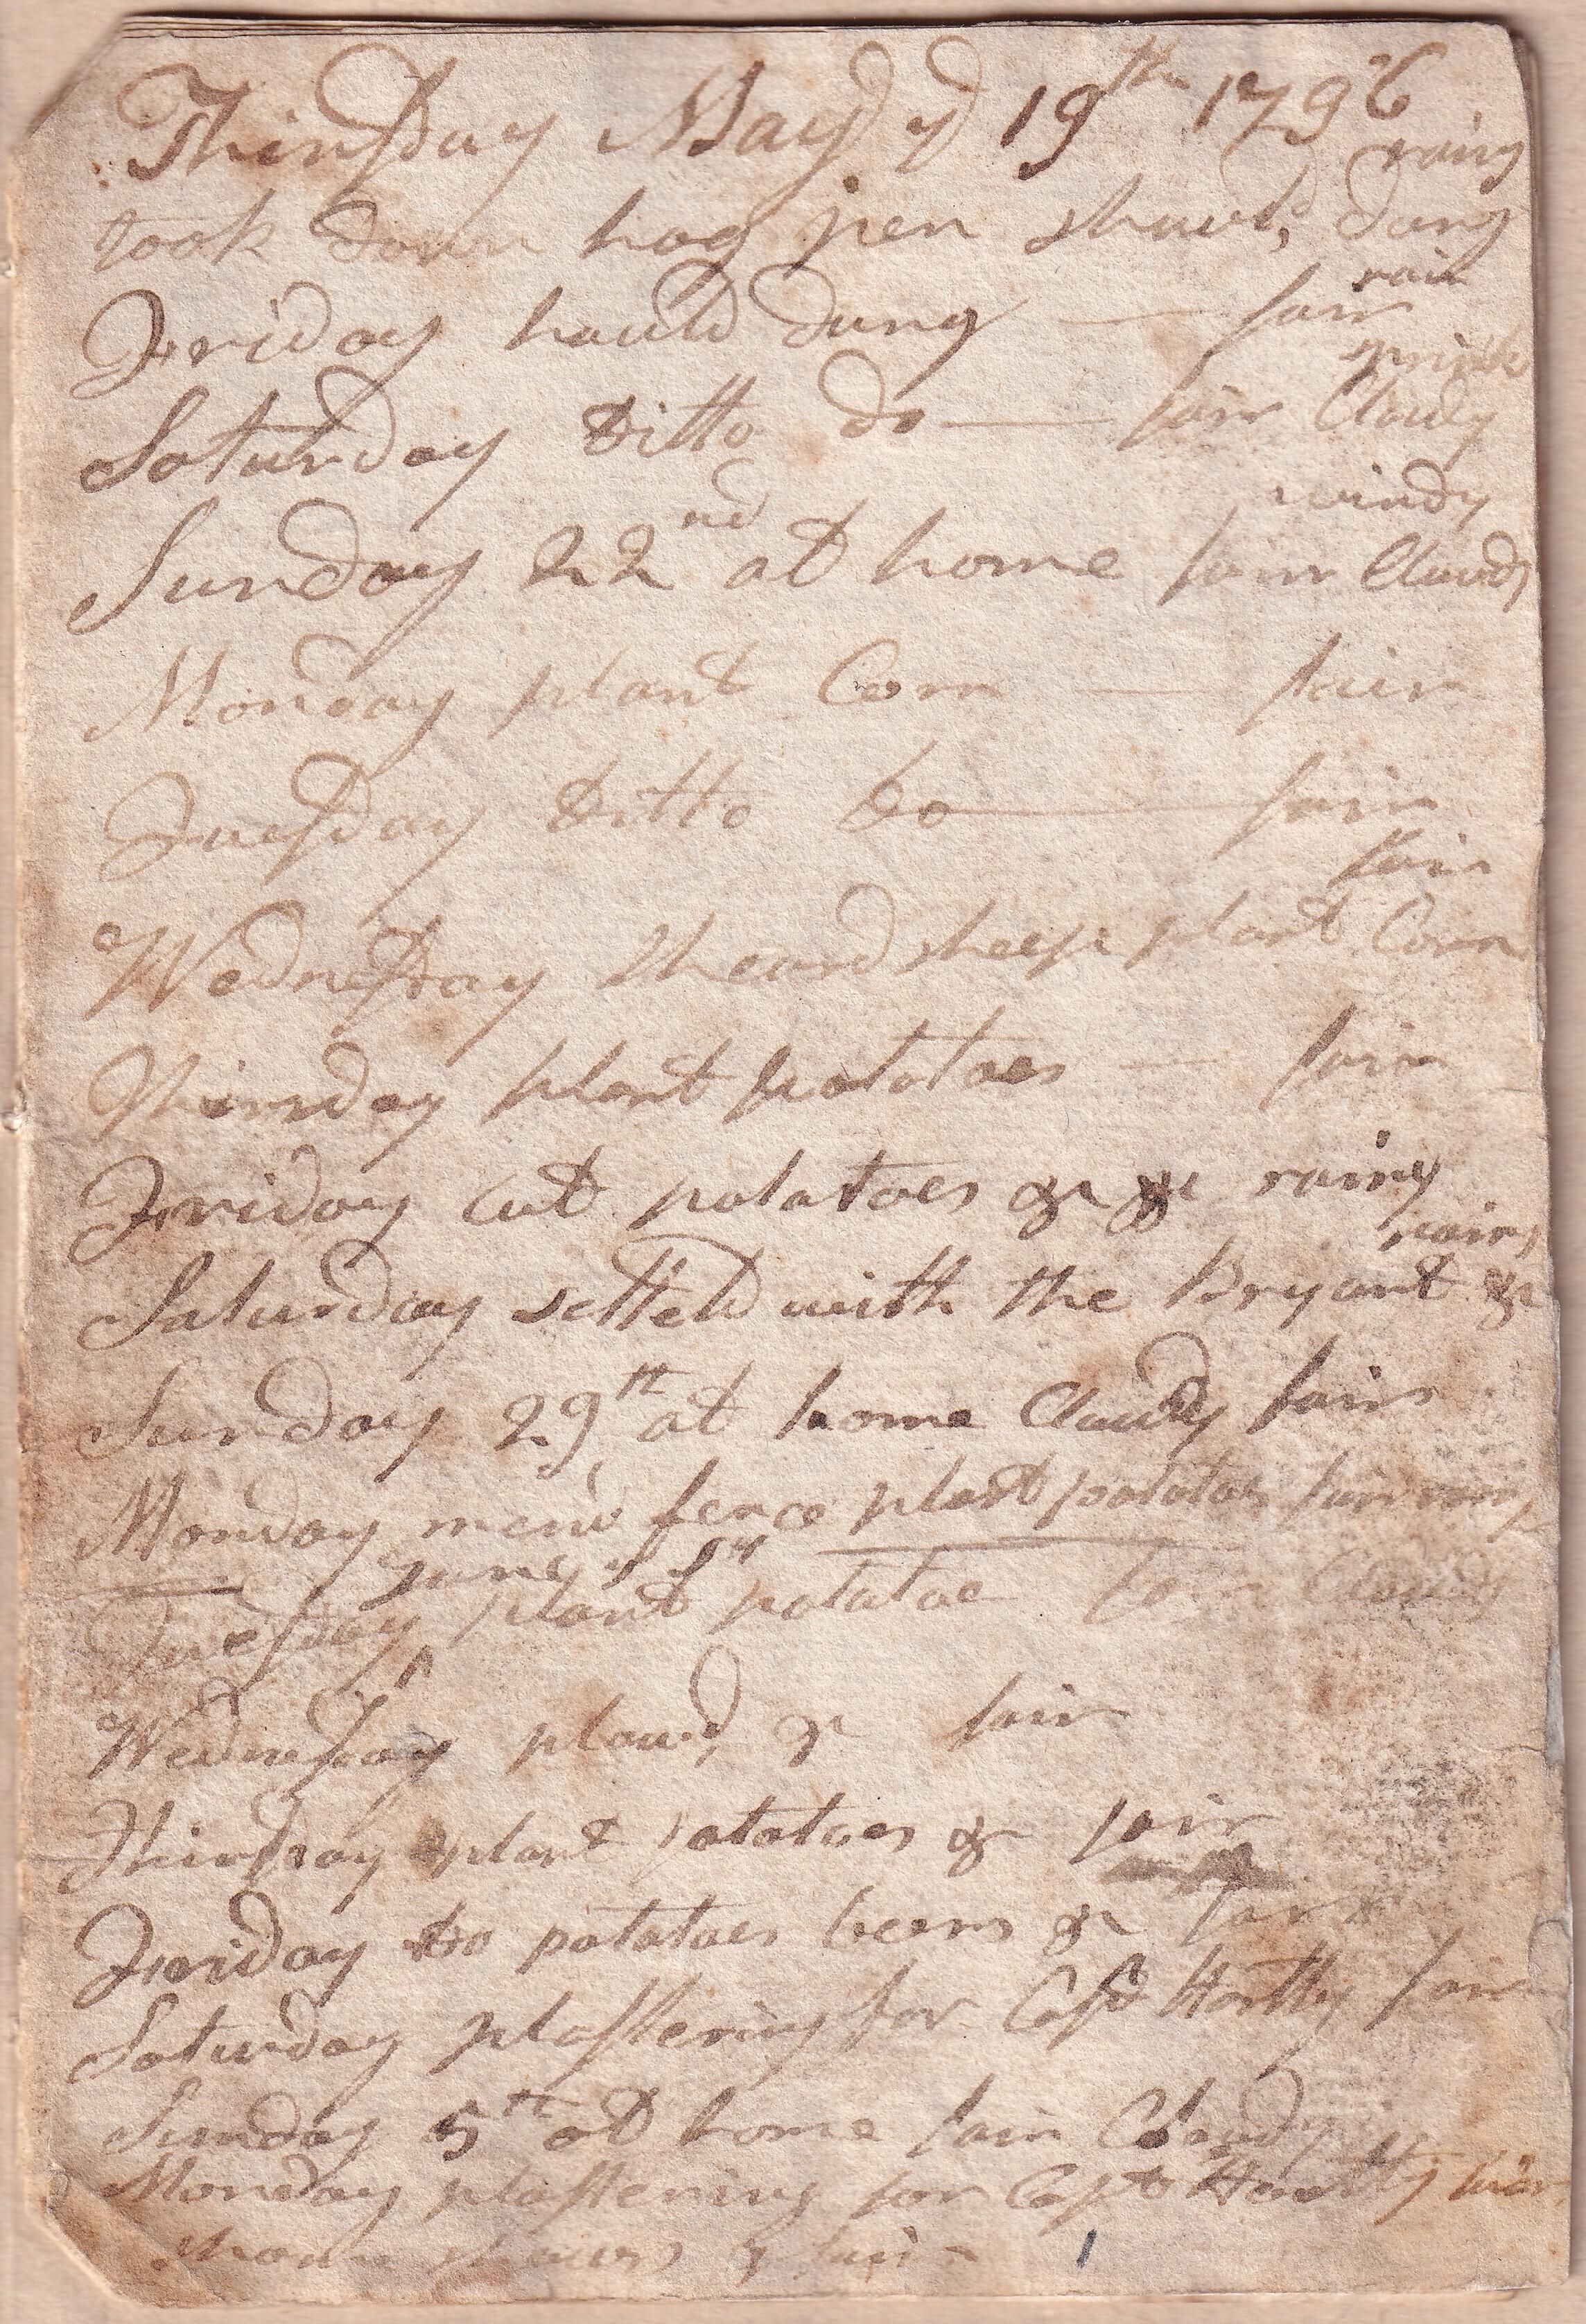 Thirsday May y 19th 1796
rainy
took down hog pen dung
rain
Friday hauld dung — fair
Saturday Ditto do — fair Cloudy
windy
Sunday 22nd at home fair Cloudy
Monday plant Corn — fair
Tuesday Ditto Do — fair
fair
Wednesday sheard sheep plant Corn
Thirsday plant potatoes — fair
Friday cut potatoes & & rainy
rainy
Saturday setteld with the Bryant &
Sunday 29th at home Cloudy fair
Monday mend fence plant potatoes fair
June y 1st
Tuesday plant potatoe fair Cloudy
Wednesday plowd, & fair
Thirsday plant potatoes & fair
Friday do potatoes beens & fair
Saturday plastering for Capt fair
Sunday 5th at home fair Cloudy
Monday plastering for Capt fair
& fair
1